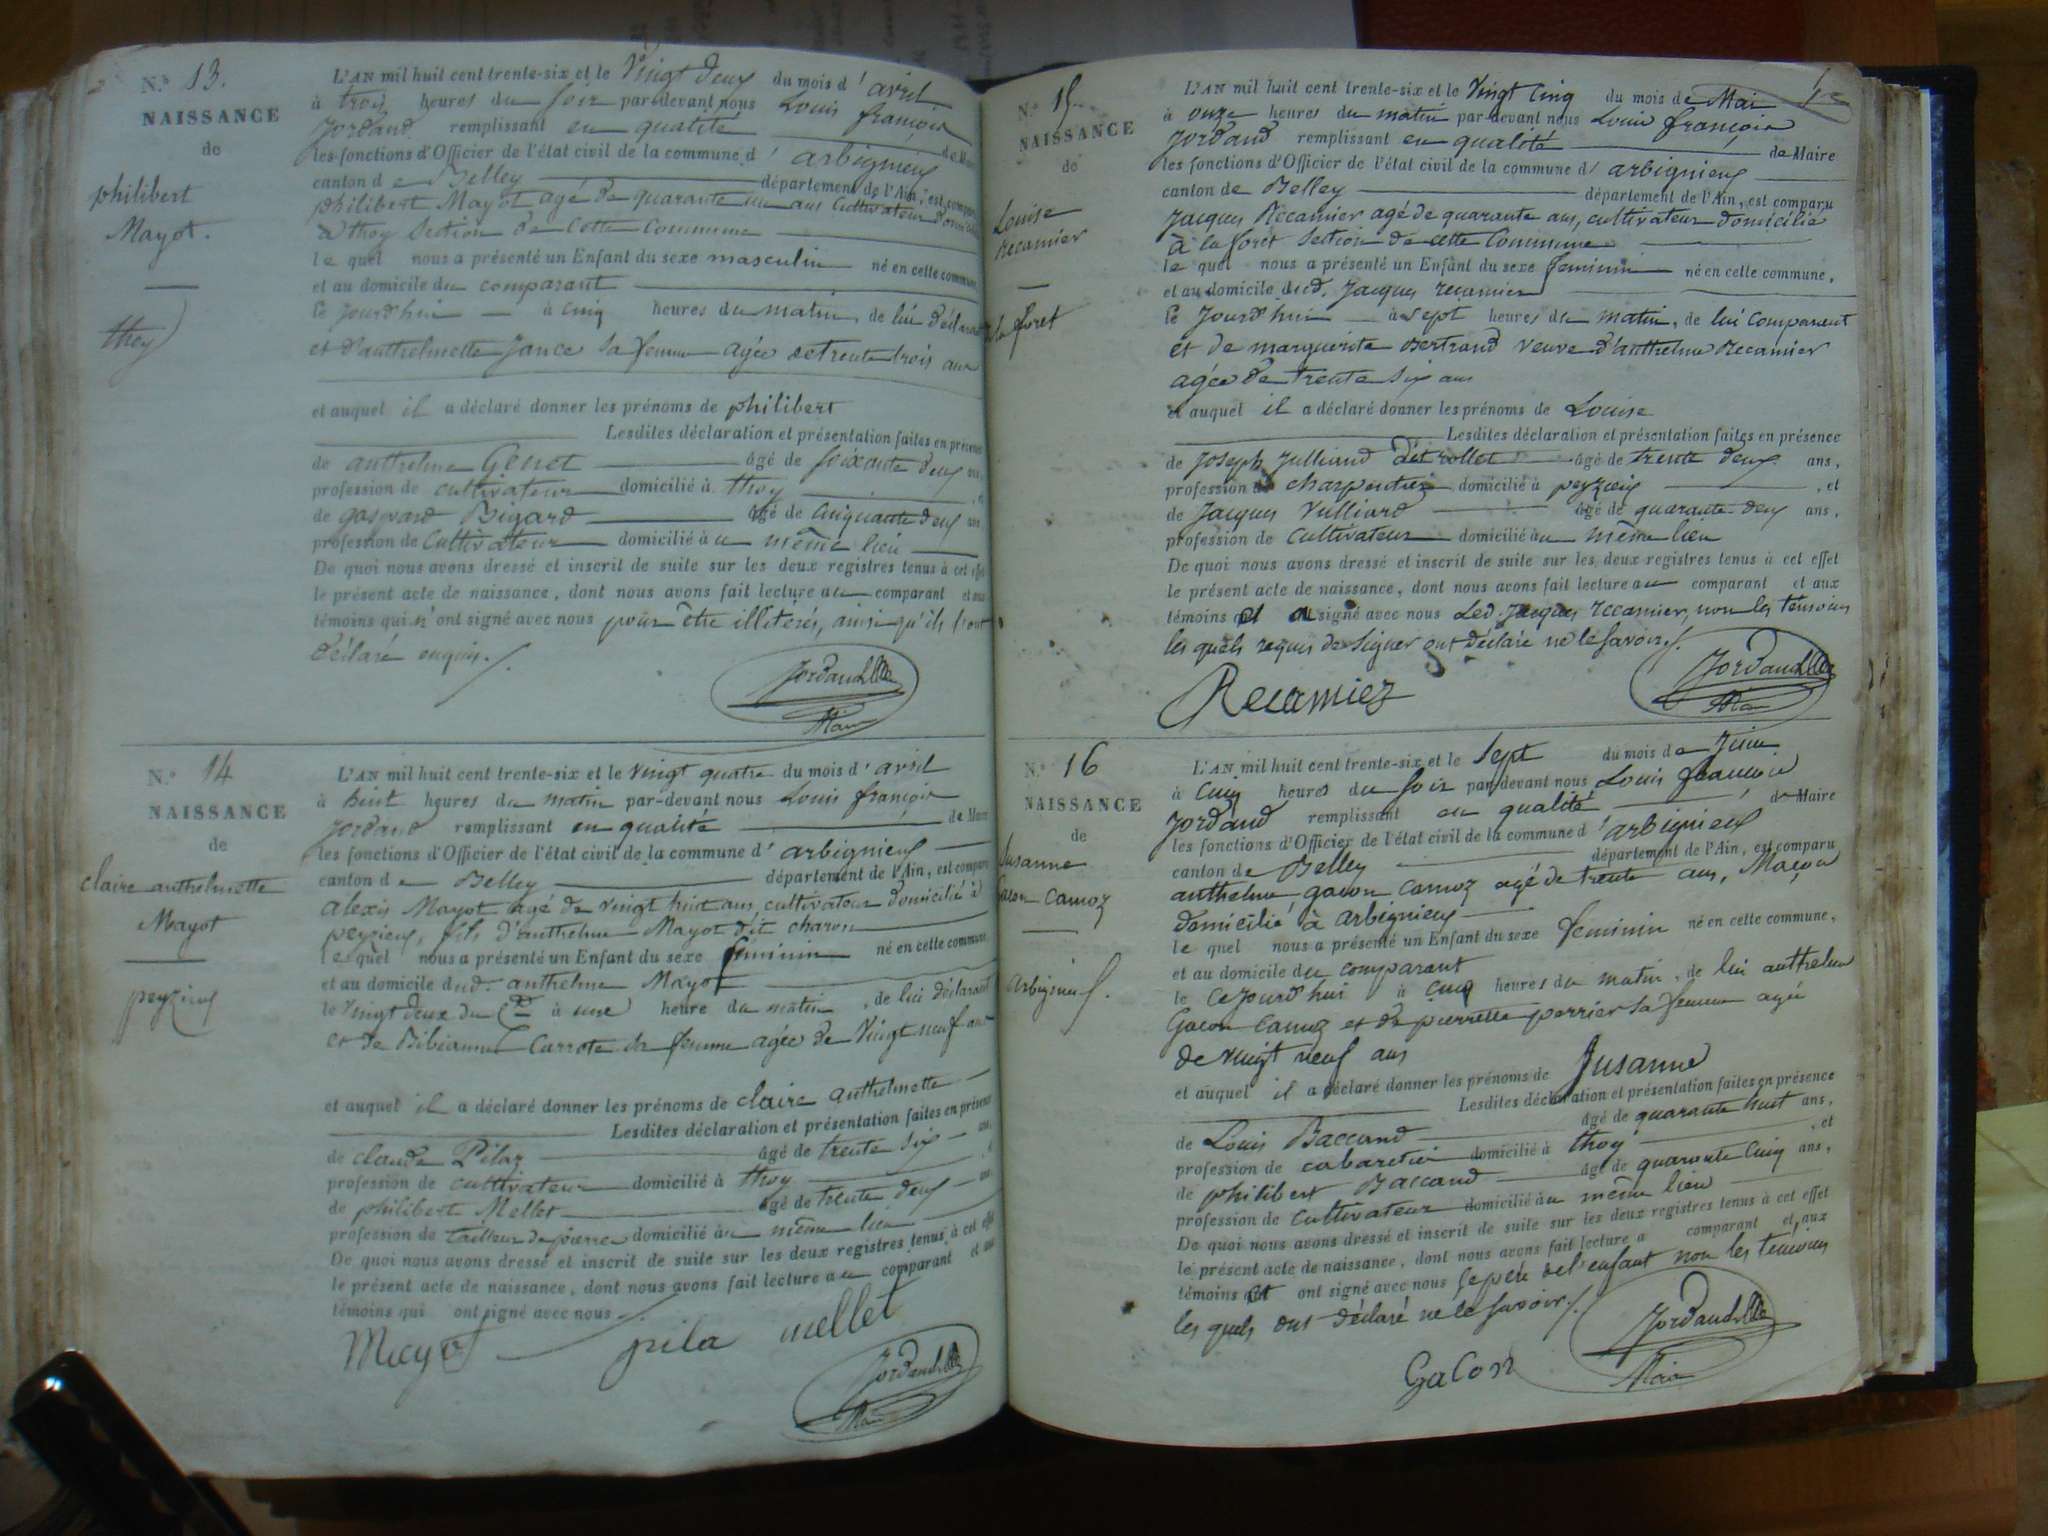 N.° 13.
NAISSANCE
de
philibert
Mayot.
thoy
L'AN mil huit cent trente-six et le Vingt deux du mois d'avril
à trois heures du soir par-devant nous Louis françois
Jordand remplissant en qualité de Maire
les fonctions d'Officier de l'état civil de la commune d'arbignieux
canton de Belley département de l'Ain, est comparu
philibert Mayot agé de quarante un ans Cultivateur
a thoy Section de Cette Commune
le quel nous a présenté un Enfant du sexe masculin né en cette commune
et au domicile du comparant
le jourd'hui à cinq heures du matin, de lui déclarant
et d'anthelmette Jance Sa femme agée de trente trois ans
et auquel il a déclaré donner les prénoms de philibert
Lesdites déclaration et présentation faites en présence
de anthelme Genet âgé de soixante deux ans
profession de cultivateur domicilié à thoy, et
de gaspard Bigard âgé de cinquante deux ans
profession de Cultivateur domicilié au même lieu
De quoi nous avons dressé et inscrit de suite sur les deux registres tenus à cet effet
le présent acte de naissance, dont nous avons fait lecture au comparant et aux
témoins qui n'ont signé avec nous pour être illiterés, ainsi qu'ils l'ont
déclaré enquis./.
Jordand
Maire
N.° 14
NAISSANCE
de
claire anthelmette
Mayot
peyzieux
L'AN mil huit cent trente-six et le vingt quatre du mois d'avril
à huit heures du matin par-devant nous Louis françois
Jordand remplissant en qualité de Maire
les fonctions d'Officier de l'état civil de la commune d'arbignieux
canton de Belley département de l'Ain, est comparu
alexis Mayot agé de vingt huit ans, cultivateur domicilié à
peyzieux, fils d'anthelme Mayot dit charon
le quel nous a présenté un Enfant du sexe feminin né en cette commune
et au domicile dud. anthelme Mayot
le vingt deux du Ct à une heure du matin, de lui déclarant
et de Bibianne Carrote sa femme agée de Vingt neuf ans
et auquel il a déclaré donner les prénoms de claire anthelmette
Lesdites déclaration et présentation faites en présence
de claude Pilaz âgé de trente six ans,
profession de cultivateur domicilié à thoy, et
de philibert Mellet âgé de trente deux ans
profession de tailleur de pierre domicilié au même lieu
De quoi nous avons dressé et inscrit de suite sur les deux registres tenus à cet effet
le présent acte de naissance, dont nous avons fait lecture au comparant et aux
témoins qui ont signé avec nous.
Mayot pila mellet
Jordand
Maire
N.° 15
NAISSANCE
de
Louise
recamier
la foret
L'AN mil huit cent trente-six et le Vingt Cinq du mois de Mai
à onze heures du matin par-devant nous Louis françois
Jordand remplissant en qualité de Maire
les fonctions d'Officier de l'état civil de la commune d'arbignieux
canton de Belley département de l'Ain, est comparu
Jacques Recamier agé de quarante ans, cultivateur domicilié
à la forêt Section de cette Commune
le quel nous a présenté un Enfant du sexe feminin né en cette commune,
et au domicile dud. Jacques recamier
le Jourd'hui à sept heures du matin, de lui comparant
et de marguerite Bertrand veuve d'anthelme Recamier
agée de trente six ans
et auquel il a déclaré donner les prénoms de Louise
Lesdites déclaration et présentation faites en présence
de Joseph Julliand dit rollet âgé de trente deux ans,
profession de charpentier domicilié à peyzieux, et
de Jacques Vulliard âgé de quarante deux ans,
profession de Cultivateur domicilié au même lieu
De quoi nous avons dressé et inscrit de suite sur les deux registres tenus à cet effet
le présent acte de naissance, dont nous avons fait lecture au comparant et aux
témoins et a signé avec nous Led. Jacques recamier, non les témoins
les quels requis de signer ont déclaré ne le savoir./.
Recamier
Jordand
Maire
N.° 16
NAISSANCE
de
Susanne
gacon Camoz
arbignieux.
L'AN mil huit cent trente-six et le Sept du mois de Juin
à Cinq heures du soir par-devant nous Louis françois
Jordand remplissant en qualité de Maire
les fonctions d'Officier de l'état civil de la commune d'arbignieux
canton de Belley département de l'Ain, est comparu
anthelme gacon Camoz agé de trente ans, Maçon
domicilié à arbignieux
le quel nous a présenté un Enfant du sexe feminin né en cette commune,
et au domicile du comparant
le Cejourd'hui à cinq heures du matin, de lui anthelme
Gacon Camoz et de pierrette perrier Sa femme agée
de vingt neuf ans
et auquel il a déclaré donner les prénoms de Susanne
Lesdites déclaration et présentation faites en présence
de Louis Baccand âgé de quarante huit ans,
profession de cabaretier domicilié à thoy, et
de philibert Baccand âgé de quarante Cinq ans,
profession de Cultivateur domicilié au même lieu
De quoi nous avons dressé et inscrit de suite sur les deux registres tenus à cet effet
le présent acte de naissance, dont nous avons fait lecture a comparant et aux
témoins et ont signé avec nous le père de l'enfant non les témoins
les quels ont déclaré ne le savoir./.
Gacon
Jordand
Maire